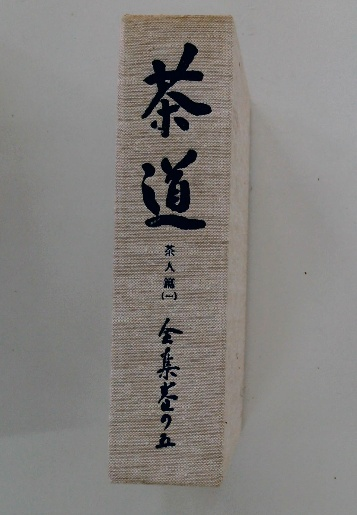 茶道
茶人篇(一)
全集巻の五